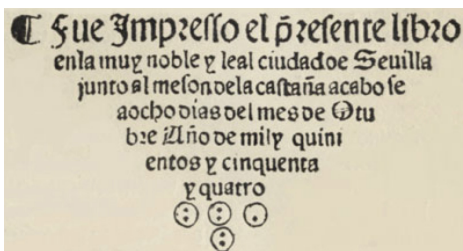 ☾ Fue Impresso el p̃resente libro
enla muy noble y leal ciudadde Seuilla
junto al meson dela castaña acabo se
aocho dias del mes de Otu
bre Año de mil y quini
entos y cinquenta
y quatro